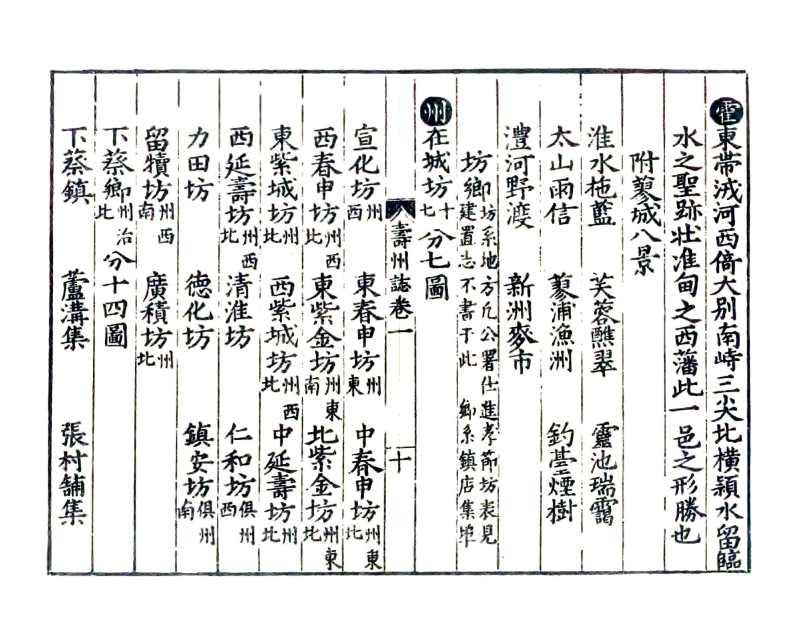 霍東帶淠河西倚大别南峙三尖北横潁水留臨
水之聖跡壮淮甸之西藩此一邑之形勝也
附蓼城八景
淮水拖藍 芙蓉醮翠 靈池瑞靄
太山雨信 蓼浦漁洲 釣臺煙樹
灃河野渡 新洲麥市
坊鄉坊系地方凡公署仕進孝節坊表見建置志不書于此 鄉系鎮店集埠
州在城坊十七分七圖
壽州誌卷一 十
宣化坊州西 東春申坊州東 中春申坊州東北
西春申坊州西北 東紫金坊州東南 北紫金坊州東北
東紫城坊州北 西紫城坊州西北 中延壽坊州北
西延壽坊州西北 清淮坊 仁和坊俱州西
力田坊 德化坊 鎮安坊俱州南
留犢坊州西南 廣積坊州北
下蔡鄉州治北分十四圖
下蔡鎮 蘆溝集 張村舖集